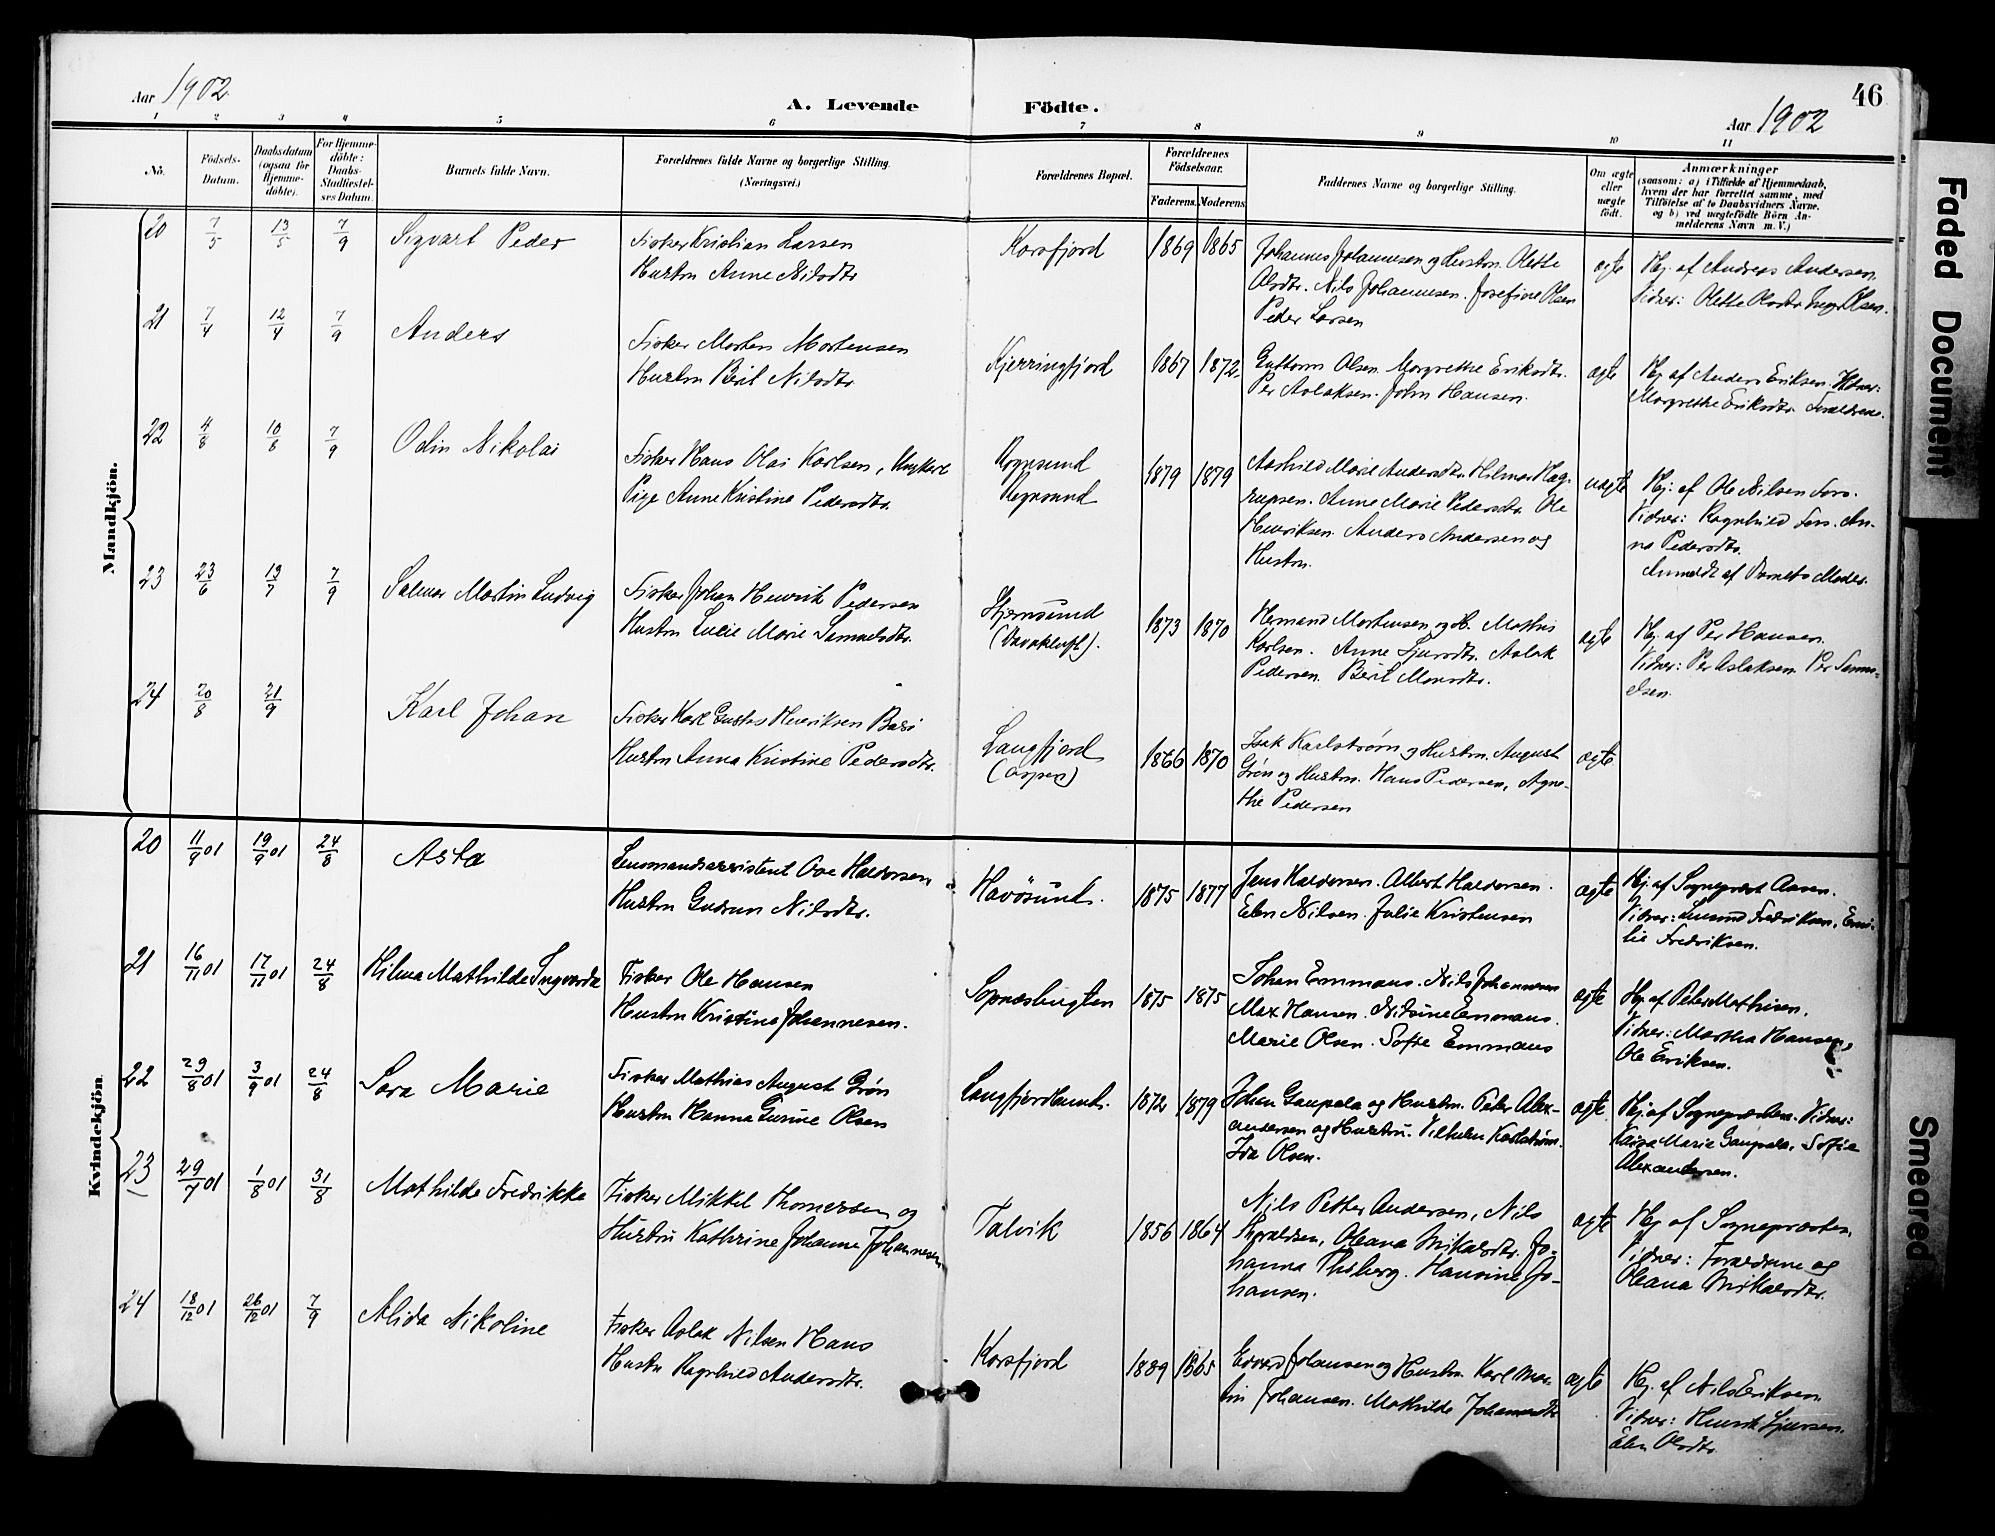 46
Aar 1902
A. Levende Födte.
Aar 1902
1 2 3 4 5 6 7 8 9 10 11
No.
Födsels-Datum.
Daabsdatum (ogsaa for Hjemme-döbte).
For Hjemme-döbte: Daabs-Stadfæstel-ses Datum.
Barnets fulde Navn.
Forældrenes fulde Navne og borgerlige Stilling.
(Næringsvei.)
Forældrenes Bopæl.
Forældrenes Födselsaar.
Faderens. Moderens.
Faddernes Navne og borgerlige Stilling.
Om ægte eller uægte födt.
Anmærkninger
(saasom: a) i Tilfælde af Hjemmedaab,
hvem der har forrettet samme, med
Tilföielse af to Daabsvidners Navne,
og b) ved uægtefödte Börn An-
melderens Navn m. V.)
Mandkjön.
20 7/5 13/5 7/9 Sigvart Peder
Fisker Kristian Larsen
Hustru Anne Nilsdtr.
Korsfjord 1869 1865
Johannes Johannesen og Hustru Olette
Olsdtr. Nils Johannesen. Josefine Olsen
Peder Larsen
ægte
Hj. af Andreas Andersen.
Vidner: Olette Olsdtr. Inga Olsen.
21 7/4 12/4 7/9 Anders
Fisker Morten Mortensen
Hustru Berit Nilsdtr.
Kjerringfjord 1867 1872
Guttorm Olsen. Margrethe Eriksdtr.
Per Aslaksen. John Hansen.
ægte
Hj. af Anders Eriksen. Vidner:
Margrethe Eriksdtr. Forældrene.
22 4/8 10/8 7/9 Odin Nikolai
Fisker Hans Olai Karlsen, Ungkarl
Pige Anne Kristine Pedersdtr.
Rognsund
Rognsund
1879 1879
Aashild Marie Andersdtr. Hilmar Hag-
rupsen. Anne Marie Pedersdtr. Ole
Henriksen. Anders Andersen og
Hustru.
uægte
Hj. af Ole Nilsen Fors.
Vidner: Ragnhild Fors. An-
na Pedersdtr.
Anmeldt af Barnets Moder.
23 23/6 13/7 7/9 Salmer Martin Ludvig
Fisker Johan Henrik Pedersen
Hustru Lucie Marie Samuelsdtr.
Stjernsund
1873 1870
Hemand Mortensen og H. Mathis
Karlsen. Anne Sjursdtr. Aslak
Pedersen. Berit Monsdtr.
ægte
Hj. af Per Hansen.
Vidner: Per Aslaksen. Per Samu-
elsen.
24 20/8 21/9 Karl Johan
Fisker Karl Gustav Henriksen Basi
Hustru Anna Kristine Pedersdtr.
Langfjord
(Aspen)
1866 1870
Isak Karlström og Hustru. August
Grön og Hustru. Hans Pedersen, Agne-
the Pedersen
ægte
Kvindekjön.
20 11/9 01 19/9 01 24/8 Asta
Lensmandsassistent Ove Haldorsen
Hustru Gudrun Nilsdtr.
Havösund. 1875 1877
Jens Haldorsen. Albert Haldorsen.
Elen Nilsen. Julie Kristensen
ægte
Hj. af Sogneprest Aasen.
Vidner: Lensmd Fredriksen, Emi-
lie Fredriksen.
21 16/11 01 17/11 01 24/8 Hilma Mathilde Ingvarda
Fisker Ole Hansen
Hustru Kristine Johannesen.
Sopnæsbugten 1875 1875
Johan Emmaus. Nils Johannesen
Max Hansen. Nilsine Emmaus.
Marie Olsen. Sofie Emmaus
ægte
Hj. af Peter Mathisen.
Vidner: Martha Hansen,
Ole Eriksen.
22 29/8 01 3/9 01 24/8 Sara Marie
Fisker Mathias August Grön
Hustru Hanna Gurine Olsen
Langfjordhavn. 1872 1879
Johan Gaupela og Hustru. Peter Alex-
andersen og Hustru. Vilhelm Karlström.
Ida Olsen.
ægte.
Hj. af Sognepresten. Vidner:
Kaisa Marie Gaupela, Sofie
Alexandersen.
23 29/7 01 1/8 01 31/8 Mathilde Fredrikke
Fisker Mikkel Thomassen og
Hustru Kathrine Johanne Johannesen
Talvik 1856 1864
Nils Petter Andersen, Nils
Oleana Mikalsdtr. Jo-
hanna Thiberg. Hansine Jo-
hansen.
ægte
Hj. af Sognepræsten.
Vidner: Forældrene og
Oleana Mikalsdtr.
24 18/12 01 26/12 01 7/9 Alida Nikoline
Fisker Aslak Nilsen Haus
Hustru Ragnhild Andersdtr.
Korsfjord 1889 1865
Edvard Johansen og Hustru. Karl Mar-
tin Johansen. Mathilde Johannesdtr
ægte
Hj. af Nils Eriksen.
Vidner: Henrik Sjursen.
Elen Olsdtr.
Faded Document
Smeared